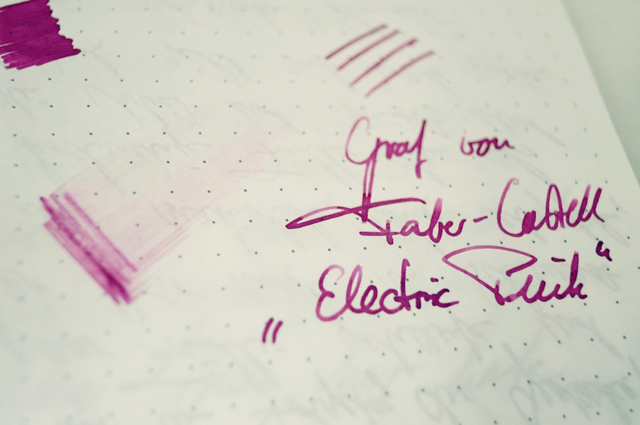 Graf von
Faber-Castell
"Electric Pink"